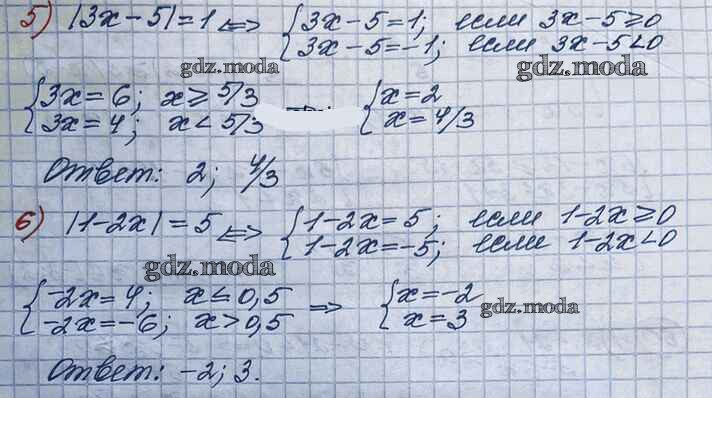 5) |3x-5|=1 <=> { 3x-5=1; если 3x-5≥0
3x-5=-1; если 3x-5<0
gdz.moda gdz.moda
{ 3x=6; x≥5/3 { x=2
3x=4; x<5/3 x=4/3
Ответ: 2; 4/3
6) |1-2x|=5 <=> { 1-2x=5; если 1-2x≥0
1-2x=-5; если 1-2x<0
gdz.moda
{ -2x=4; x≤0,5 => { x=-2
-2x=-6; x>0,5 x=3
gdz.moda
Ответ: -2; 3.